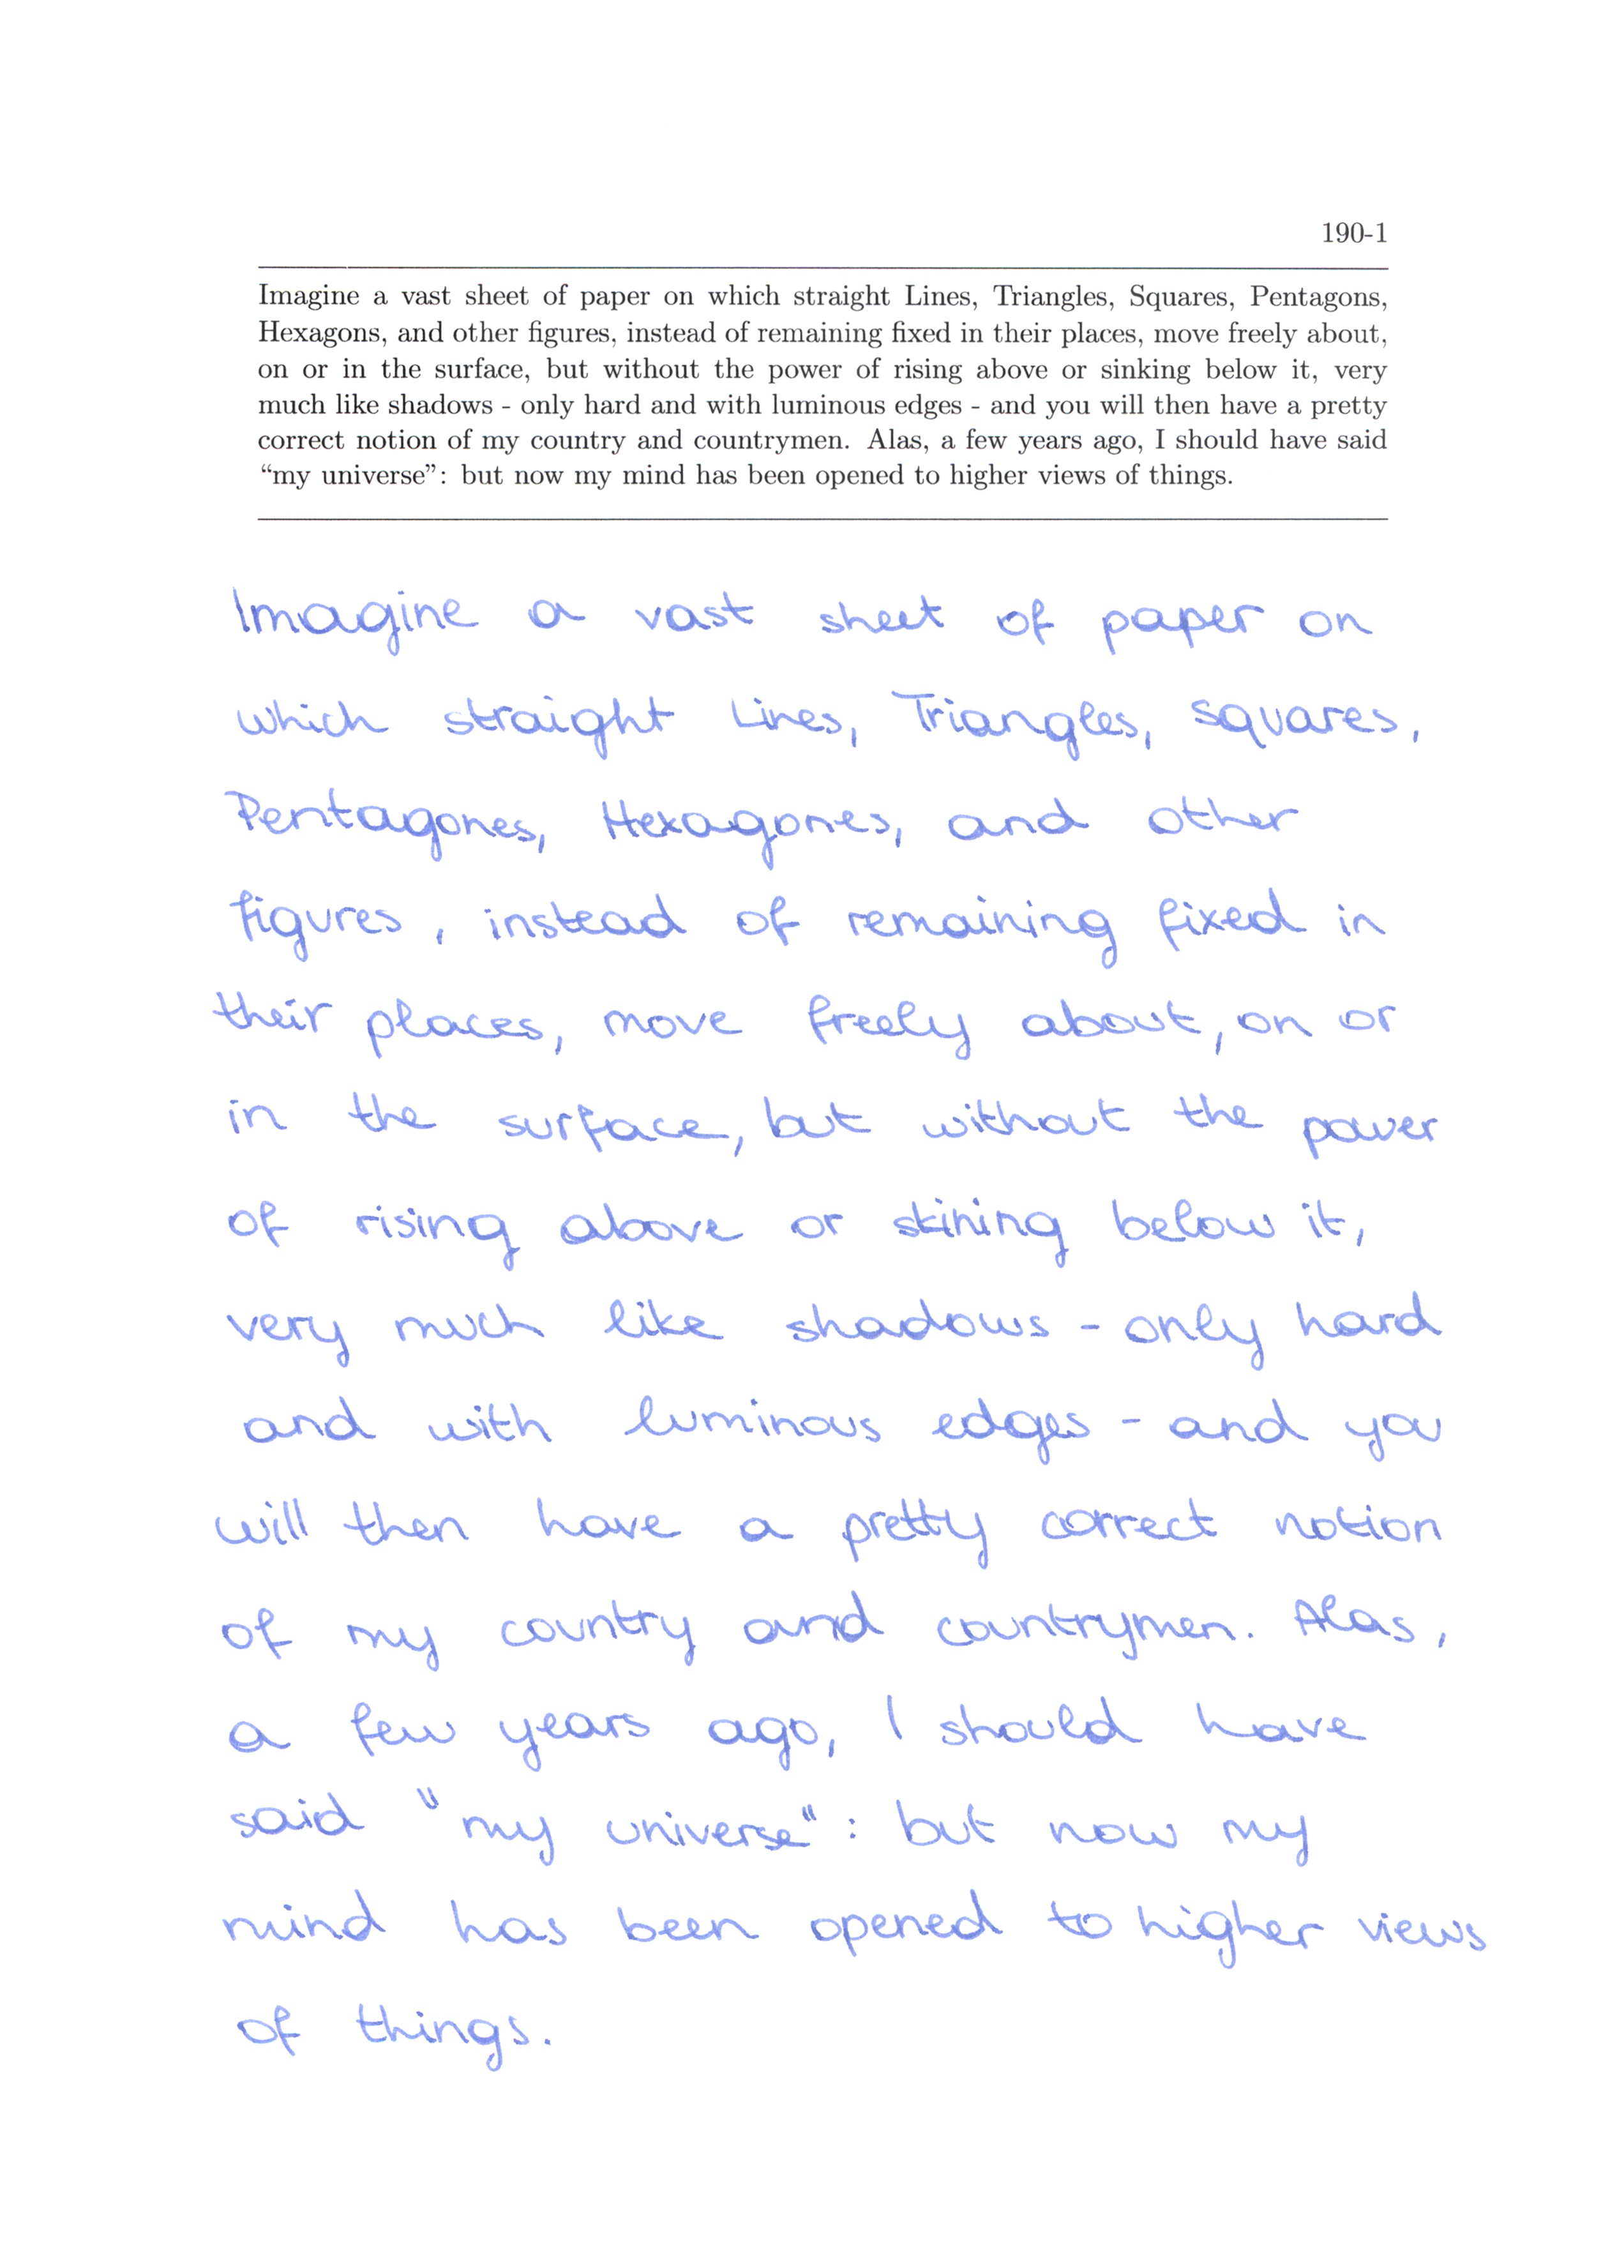 190-1
Imagine a vast sheet of paper on which straight Lines, Triangles, Squares, Pentagons,
Hexagons, and other figures, instead of remaining fixed in their places, move freely about,
on or in the surface, but without the power of rising above or sinking below it, very
much like shadows - only hard and with luminous edges - and you will then have a pretty
correct notion of my country and countrymen. Alas, a few years ago, I should have said
“my universe”: but now my mind has been opened to higher views of things.
Imagine a vast sheet of paper on
which straight Lines, Triangles, squares,
Pentagones, Hexagones, and other
figures, instead of remaining fixed in
their places, move freely about, on or
in the surface, but without the power
of rising above or skining below it,
very much like shadows - only hard
and with luminous edges - and you
will then have a pretty correct notion
of my country and countrymen. Alas,
a few years ago, I should have
said "my universe": but now my
mind has been opened to higher views
of things.